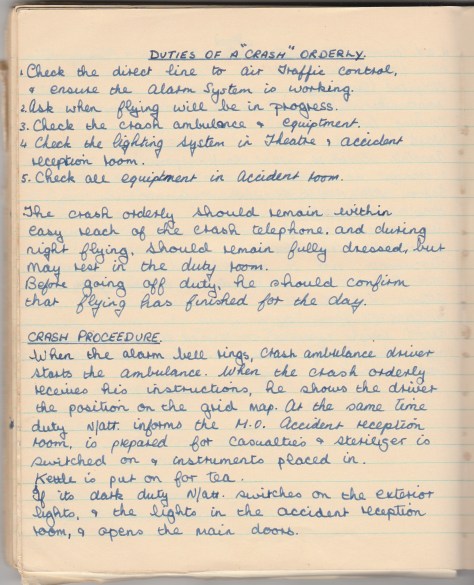 DUTIES OF A "CRASH" ORDERLY.
1. Check the direct line to air Traffic control,
& ensure the Alarm System is working.
2. Ask when flying will be in progress.
3. Check the crash ambulance & equiptment.
4 Check the lighting system in Theatre & accident
reception room.
5. Check all equiptment in Accident room.
The crash orderly should remain within
easy reach of the crash telephone, and during
night flying, should remain fully dressed, but
may rest in the duty room.
Before going off duty, he should confirm
that flying has finished for the day.
CRASH PROCEEDURE.
When the alarm bell rings, Crash ambulance driver
starts the ambulance. When the crash orderly
receives his instructions, he shows the driver
the position on the grid map. At the same time
duty N/att. informs the M.O. Accident reception
room, is prepared for casualties & sterilizer is
switched on & instruments placed in.
Kettle is put on for tea.
If its dark duty N/att. switches on the exterior
lights, & the lights in the accident reception
room, & opens the main doors.